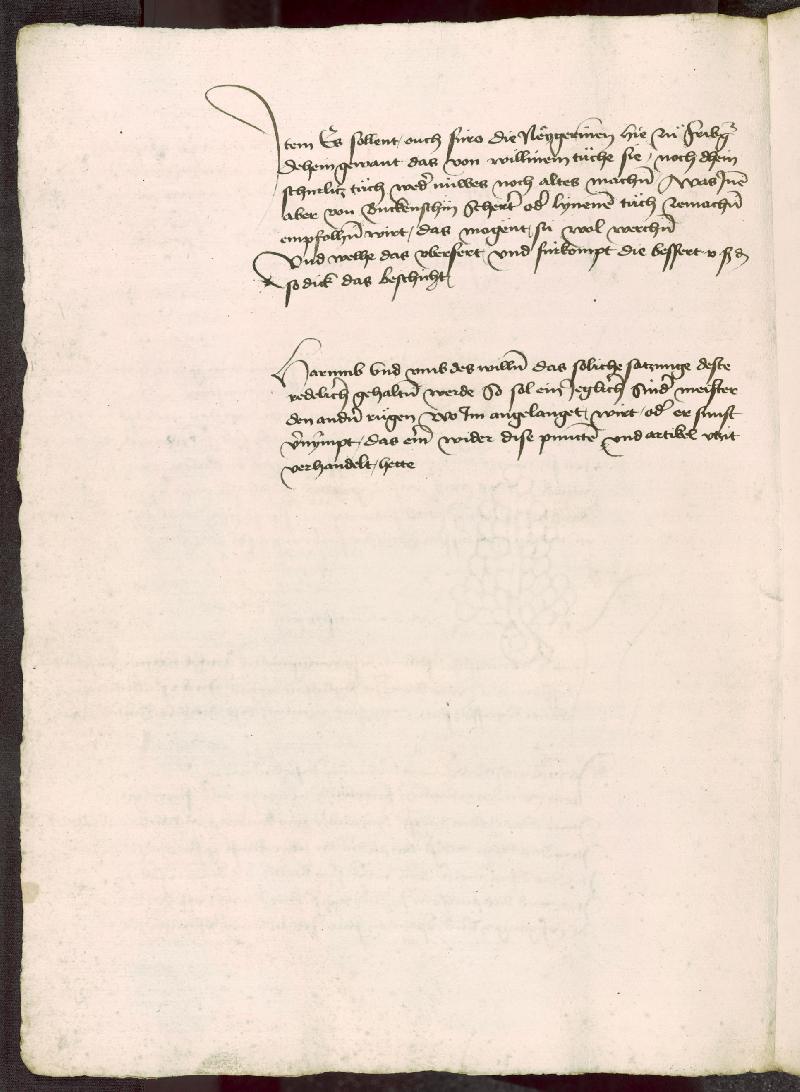 Item Es sollent ouch furo die Neygerinen hie zü frib̄g
dehein gewant das von willinem tüche sie / noch dhein
schurlitz tüch wed̄ nüwes noch altes machn̄ / Was Inē
aber von Buckenschin Schert̄ od̄ lynenē tüch zemachn̄
empfolhn̄ wirt / das mogent sū wol werchn̄
Und welhe das vberfert vnd furkompt die bessert v ß d
so dick das beschiht

Harumb vnd vmb des willn̄ das soliche satzunge deste
redlich̄ gehaltn̄ werde So sol ein Jeglich̄ meister
den andn̄ rügen Wo Im angelanget wirt / od̄ er sunst
v̄nympt / das ein̄ wider dise puncte vnd artikel vtzit
verhandelt hette